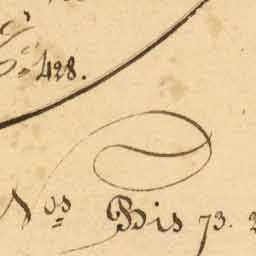 428.
Nos Bis 73.